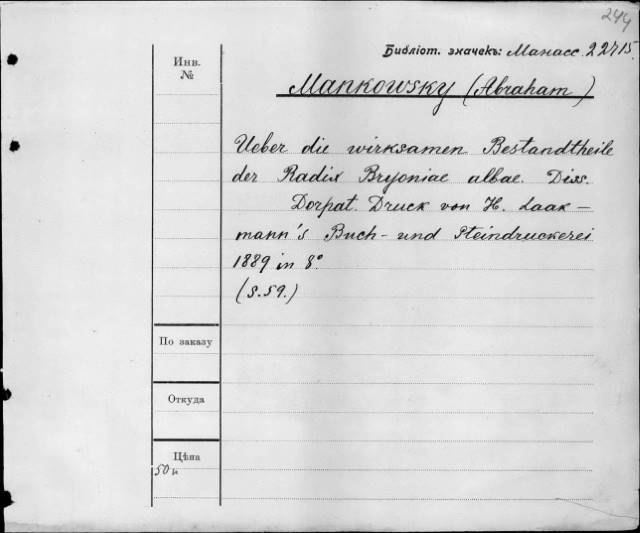 244
Библіот. значекъ: Манасс. 22715.
Инв.
№
Mankowsky (Abraham)
Ueber die wirksamen Bestandtheile
der Radix Bryoniae albae. Diss.
Dorpat. Druck von H. Laak-
mann's Buch- und Steindruckerei
1889 in 8°
(S. 59.)
По заказу
Откуда
Цѣна
50 к